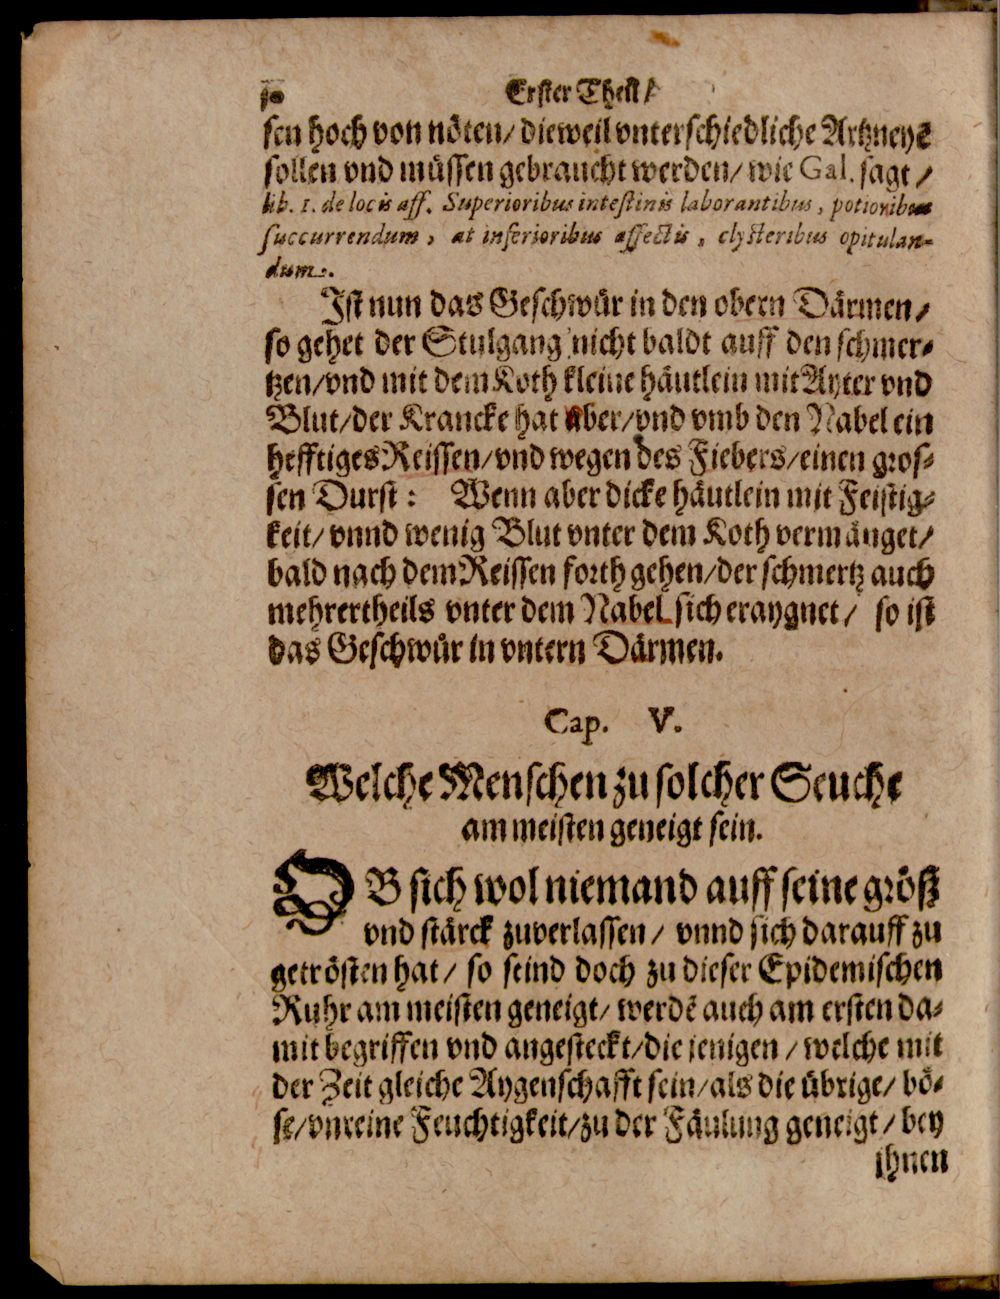 Erster Theil/
sen hoch von nöten/ dieweil vnterschiedliche Artzneyē
sollen vnd müssen gebraucht werden/ wie Gal. sagt /
lib. 1. de locis aff. Superioribus intestinis laborantibus, potionibus
succurrendum, at inferioribus affectis, clysteribus opitulan-
dum.
Ist nun das Geschwür in den obern Därmen/
so gehet der Stulgang nicht baldt auff den schmer-
tzen/vnd mit dem Koth kleine häutlein mit Ayter vnd
Blut/der Krancke hat aber/vnd vmb den Nabel ein
hefftiges Reissen/vnd wegen des Fiebers/einen gros-
sen Durst: Wenn aber dicke häutlein mit Feistig-
keit/ vnnd wenig Blut vnter dem Koth vermänget/
bald nach dem Reissen forth gehen/der schmertz auch
mehrertheils vnter dem Nabel sich eraygnet/ so ist
das Geschwür in vntern Därmen.
Cap. V.
Welche Menschen zu solcher Seuche
am meisten geneigt sein.
OB sich wol niemand auff seine größ
vnd stärck zuverlassen/ vnnd sich darauff zu
getrösten hat/ so seind doch zu dieser Epidemischen
Ruhr am meisten geneigt/ werdē auch am ersten da-
mit begriffen vnd angesteckt/die jenigen / welche mit
der Zeit gleiche Aygenschafft sein/als die übrige/ bö-
se/vnreine Feuchtigkeit/zu der Fäulung geneigt/ bey
ihnen